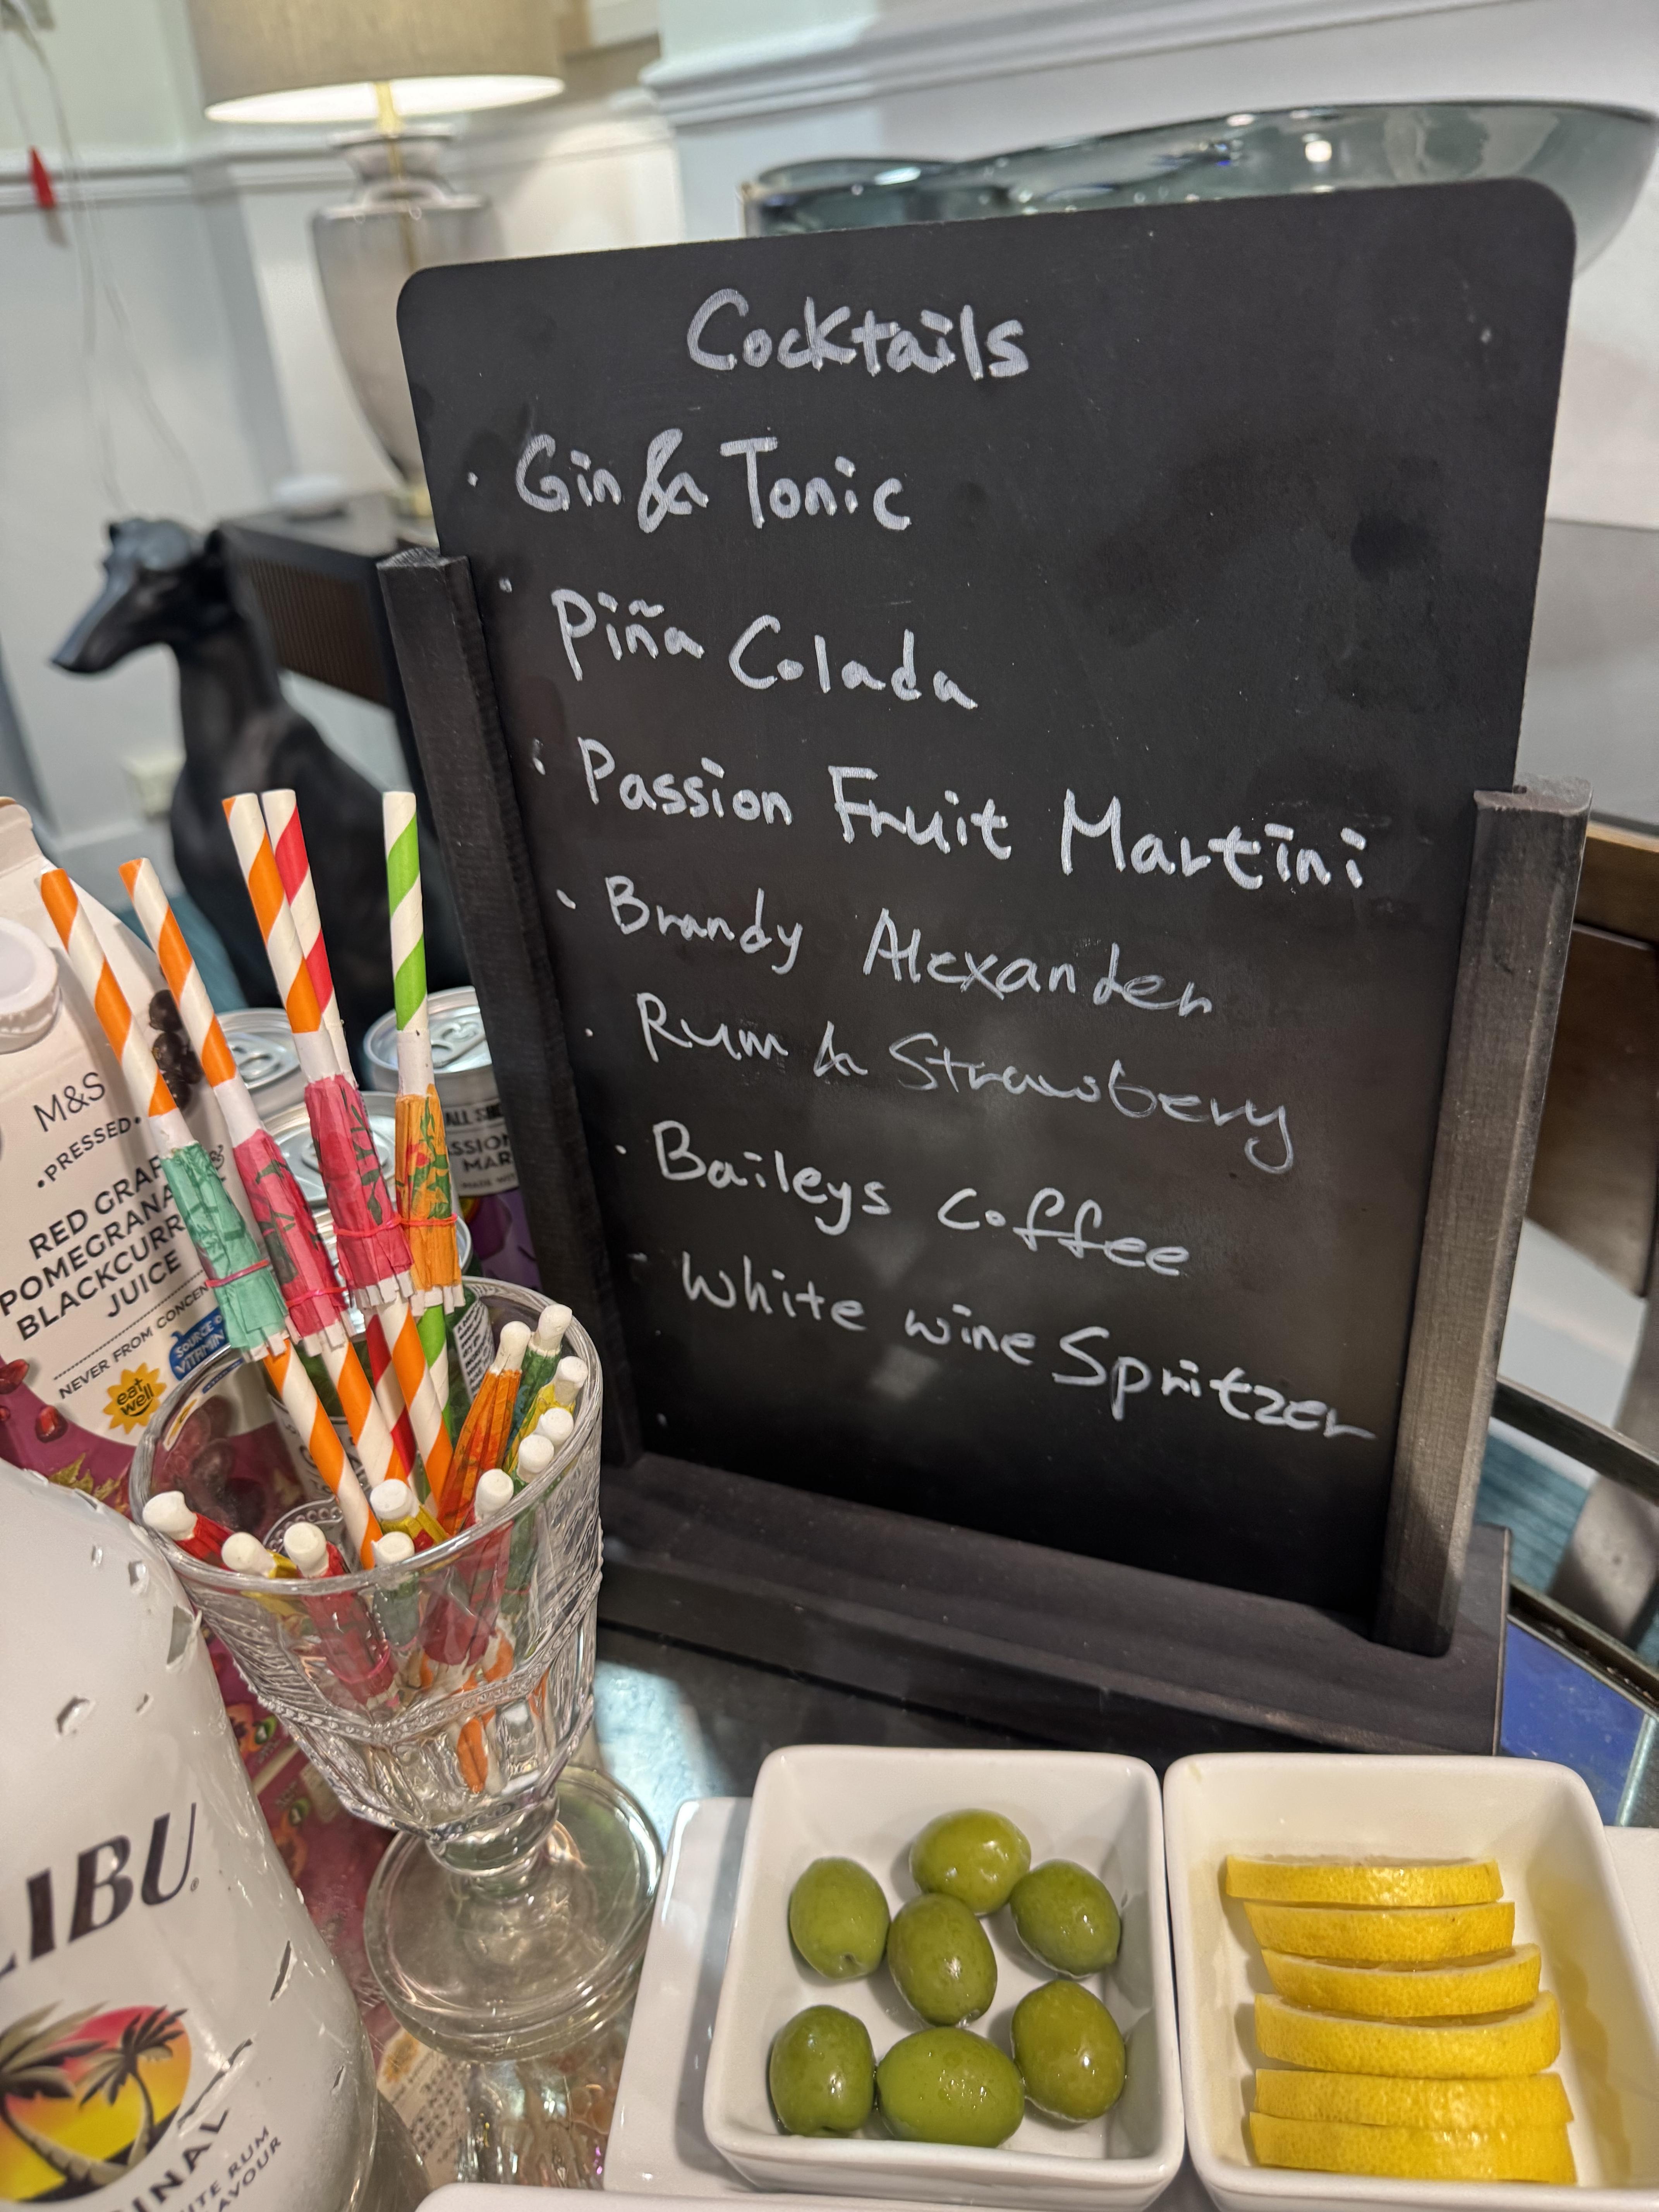 Cocktails
· Gin & Tonic
· Piña Colada
· Passion Fruit Martini
· Brandy Alexander
· Rum & Strawbery
· Baileys Coffee
- White wine Spritzer
M&S
•PRESSED•
RED GRAP
POMEGRANA
BLACKCURR
JUICE
NEVER FROM CONCEN
SOURCE O
VITAMIN
eat
well
ALL SH
SSION
MAR
MADE WIT
LIBU
INAL
ITE RUM
AVOUR